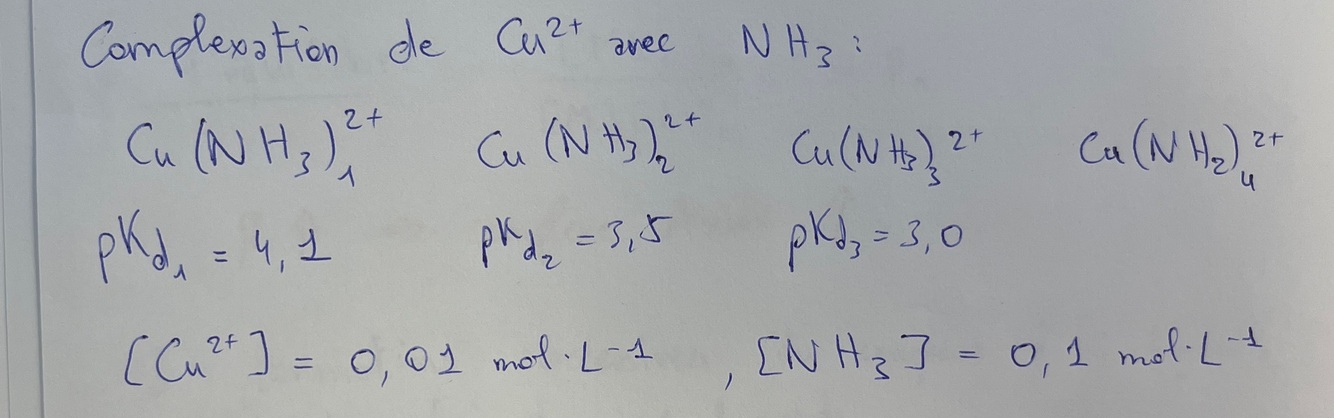 Complexation de Cu²⁺ avec NH₃ :
Cu(NH₃)₁²⁺ Cu(NH₃)₂²⁺ Cu(NH₃)₃²⁺ Cu(NH₂)₄²⁺
pKd₁ = 4,1 pKd₂ = 3,5 pKd₃ = 3,0
[Cu²⁺] = 0,01 mol·L⁻¹ , [NH₃] = 0,1 mol·L⁻¹